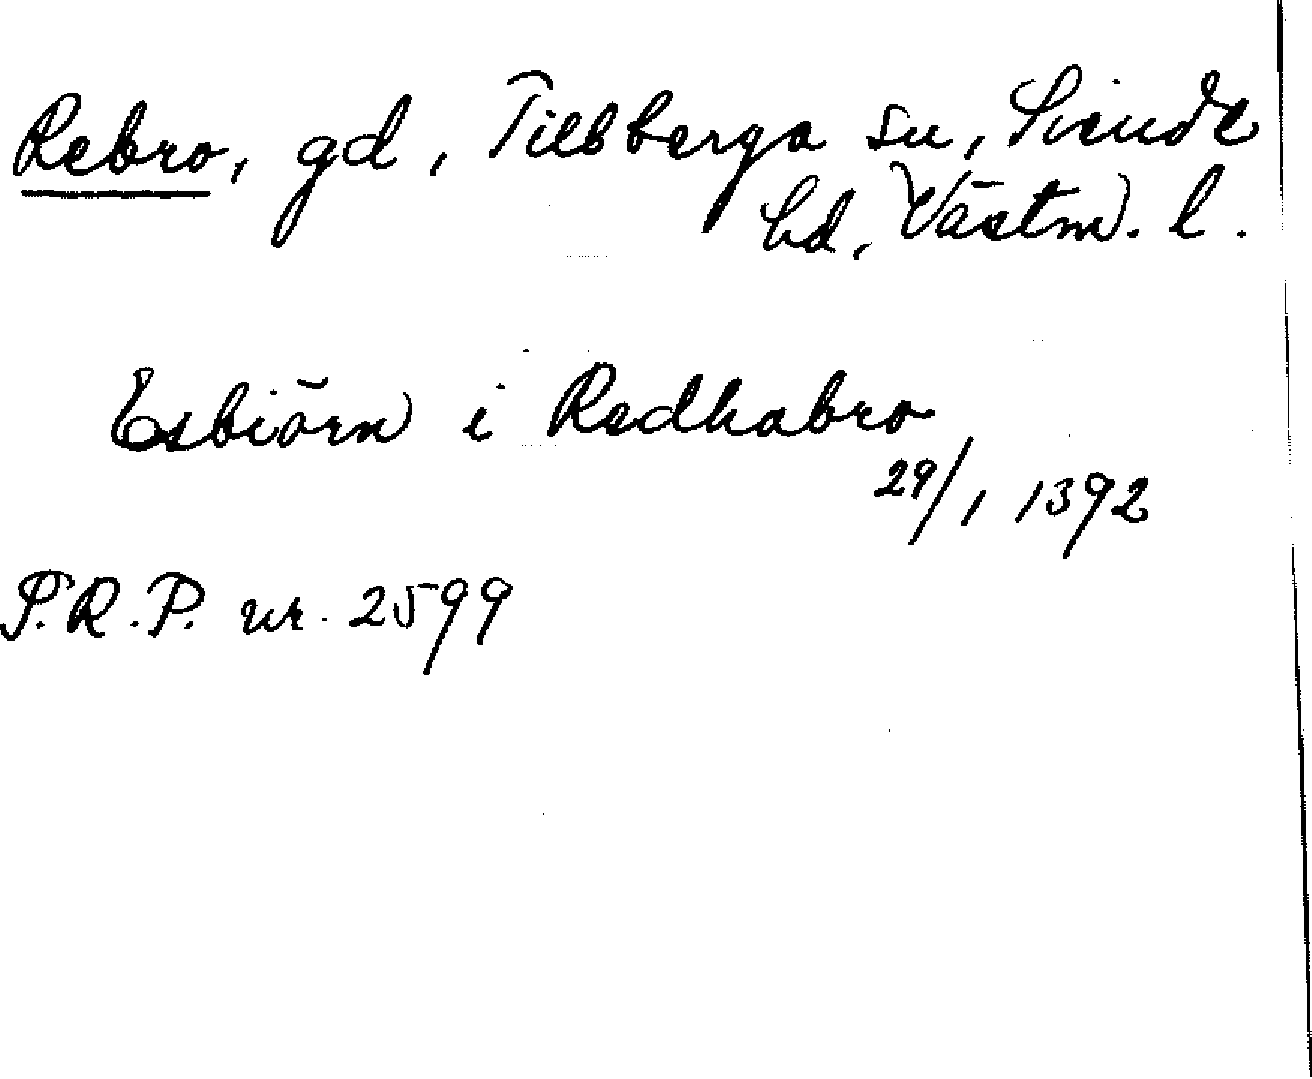 Rebro, gd, Tillberga sn, Siende
hd, Västm. l.
Esbiörn i Redhabro
29/1 1392
P.R.P. nr. 2599